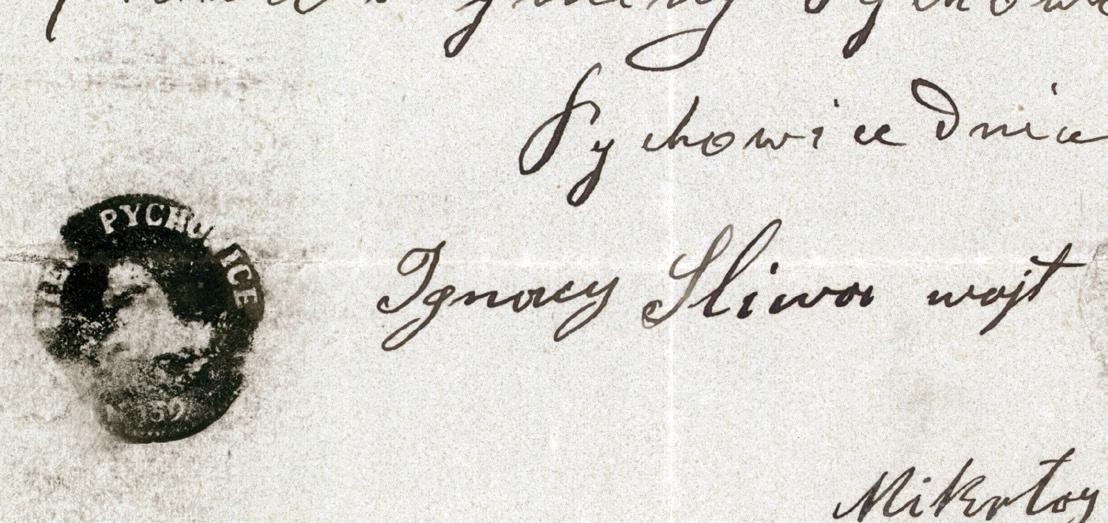 gminy Pychow
Pychowice Dnia
PYCHOWICE
159
Ignacy Sliwa wojt
Mikołay